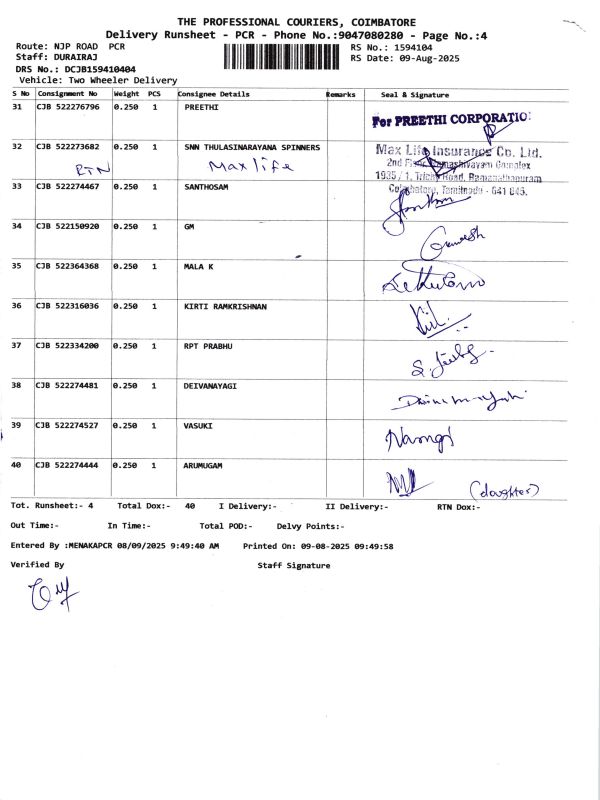 THE PROFESSIONAL COURIERS, COIMBATORE
Delivery Runsheet - PCR - Phone No.:9047080280 - Page No.:4
Route: NJP ROAD PCR
RS No.: 1594104
Staff: DURAIRAJ
RS Date: 09-Aug-2025
DRS No.: DCJB159410404
Vehicle: Two Wheeler Delivery
S No Consignment No Weight PCS Consignee Details Remarks Seal & Signature
31 CJB 522276796 0.250 1 PREETHI
For PREETHI CORPORATIO
32 CJB 522273682 0.250 1 SNN THULASINARAYANA SPINNERS
RTN Max life
Max Life Insurance Co. Ltd.
2nd Floor, Complex
1935 / 1, Trichy Road, Ramanathapuram
Coimbatore, Tamilnadu - 641 045.
33 CJB 522274467 0.250 1 SANTHOSAM
34 CJB 522150920 0.250 1 GM
Ganesh
35 CJB 522364368 0.250 1 MALA K
36 CJB 522316036 0.250 1 KIRTI RAMKRISHNAN
37 CJB 522334200 0.250 1 RPT PRABHU
38 CJB 522274481 0.250 1 DEIVANAYAGI
39 CJB 522274527 0.250 1 VASUKI
40 CJB 522274444 0.250 1 ARUMUGAM
(daughter)
Tot. Runsheet:- 4 Total Dox:- 40 I Delivery:- II Delivery:- RTN Dox:-
Out Time:- In Time:- Total POD:- Delvy Points:-
Entered By :MENAKAPCR 08/09/2025 9:49:40 AM Printed On: 09-08-2025 09:49:58
Verified By Staff Signature